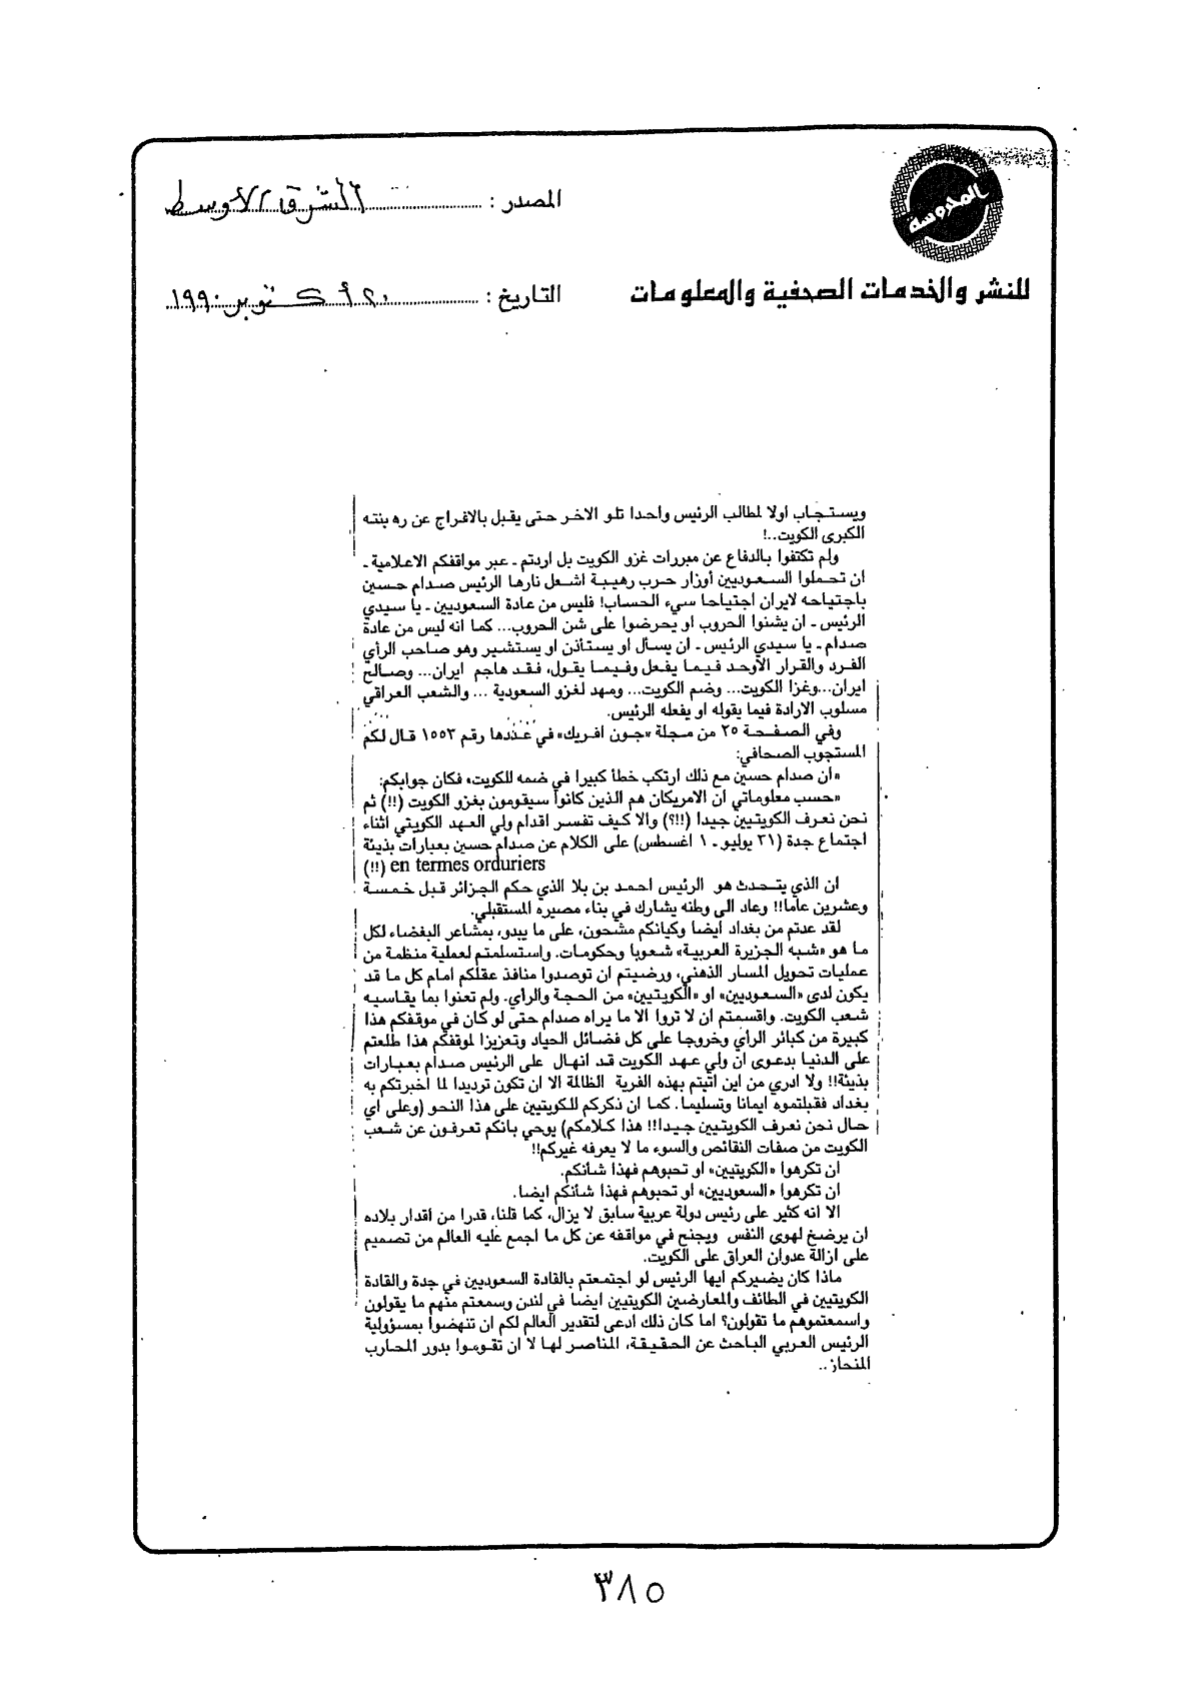 المحروسة
للنشر والخدمات الصحفية والمعلومات
المصدر : الشرق الأوسط
التاريخ : ٢٠ أكتوبر ١٩٩٠
ويستجاب اولا لمطالب الرئيس واحدا تلو الاخر حتى يقبل بالافراج عن رهينته
الكبرى الكويت..!
ولم تكتفوا بالدفاع عن مبررات غزو الكويت بل اردتم ـ عبر مواقفكم الاعلامية ـ
ان تحملوا السعوديين أوزار حرب رهيبة اشعل نارها الرئيس صدام حسين
باجتياحه لايران اجتياحا سيء الحساب! فليس من عادة السعوديين ـ يا سيدي
الرئيس ـ ان يشنوا الحروب او يحرضوا على شن الحروب... كما انه ليس من عادة
صدام ـ يا سيدي الرئيس ـ ان يسأل او يستأذن او يستشير وهو صاحب الرأي
الفرد والقرار الأوحد فيما يفعل وفيما يقول، فقد هاجم ايران... وصالح
ايران...وغزا الكويت... وضم الكويت... ومهد لغزو السعودية ... والشعب العراقي
مسلوب الارادة فيما يقوله او يفعله الرئيس.
وفي الصفحة ٢٥ من مجلة «جون افريك» في عددها رقم ١٥٥٣ قال لكم
المستجوب الصحافي:
«ان صدام حسين مع ذلك ارتكب خطأ كبيرا في ضمه للكويت» فكان جوابكم:
«حسب معلوماتي ان الامريكان هم الذين كانوا سيقومون بغزو الكويت (!!) ثم
نحن نعرف الكويتيين جيدا (!!؟) والا كيف تفسر اقدام ولي العهد الكويتي اثناء
اجتماع جدة (٣١ يوليو ـ ١ اغسطس) على الكلام عن صدام حسين بعبارات بذيئة
en termes orduriers (!!)
ان الذي يتحدث هو الرئيس احمد بن بلا الذي حكم الجزائر قبل خمسة
وعشرين عاما!! وعاد الى وطنه يشارك في بناء مصيره المستقبلي.
لقد عدتم من بغداد ايضا وكيانكم مشحون، على ما يبدو، بمشاعر البغضاء لكل
ما هو «شبه الجزيرة العربية» شعوبا وحكومات. واستسلمتم لعملية منظمة من
عمليات تحويل المسار الذهني، ورضيتم ان توصدوا منافذ عقلكم امام كل ما قد
يكون لدى «السعوديين» او «الكويتيين» من الحجة والرأي. ولم تعنوا بما يقاسيه
شعب الكويت. واقسمتم ان لا تروا الا ما يراه صدام حتى لو كان في موقفكم هذا
كبيرة من كبائر الرأي وخروجا على كل فضائل الحياد وتعزيزا لموقفكم هذا طلعتم
على الدنيا بدعوى ان ولي عهد الكويت قد انهال على الرئيس صدام بعبارات
بذيئة!! ولا ادري من اين اتيتم بهذه الفرية الظالمة الا ان تكون ترديدا لما اخبرتكم به
بغداد فقبلتموه ايمانا وتسليما. كما ان ذكركم للكويتيين على هذا النحو (وعلى اي
حال نحن نعرف الكويتيين جيدا!! هذا كلامكم) يوحي بانكم تعرفون عن شعب
الكويت من صفات النقائص والسوء ما لا يعرفه غيركم!!
ان تكرهوا «الكويتيين» او تحبوهم فهذا شأنكم.
ان تكرهوا «السعوديين» او تحبوهم فهذا شأنكم ايضا.
الا انه كثير على رئيس دولة عربية سابق لا يزال، كما قلنا، قدرا من اقدار بلاده
ان يرضخ لهوى النفس ويجنح في مواقفه عن كل ما اجمع عليه العالم من تصميم
على ازالة عدوان العراق على الكويت.
ماذا كان يضيركم ايها الرئيس لو اجتمعتم بالقادة السعوديين في جدة والقادة
الكويتيين في الطائف والمعارضين الكويتيين ايضا في لندن وسمعتم منهم ما يقولون
واسمعتموهم ما تقولون؟ اما كان ذلك ادعى لتقدير العالم لكم ان تنهضوا بمسؤولية
الرئيس العربي الباحث عن الحقيقة، المناصر لها لا ان تقوموا بدور المحارب
المنحاز..
٣٨٥